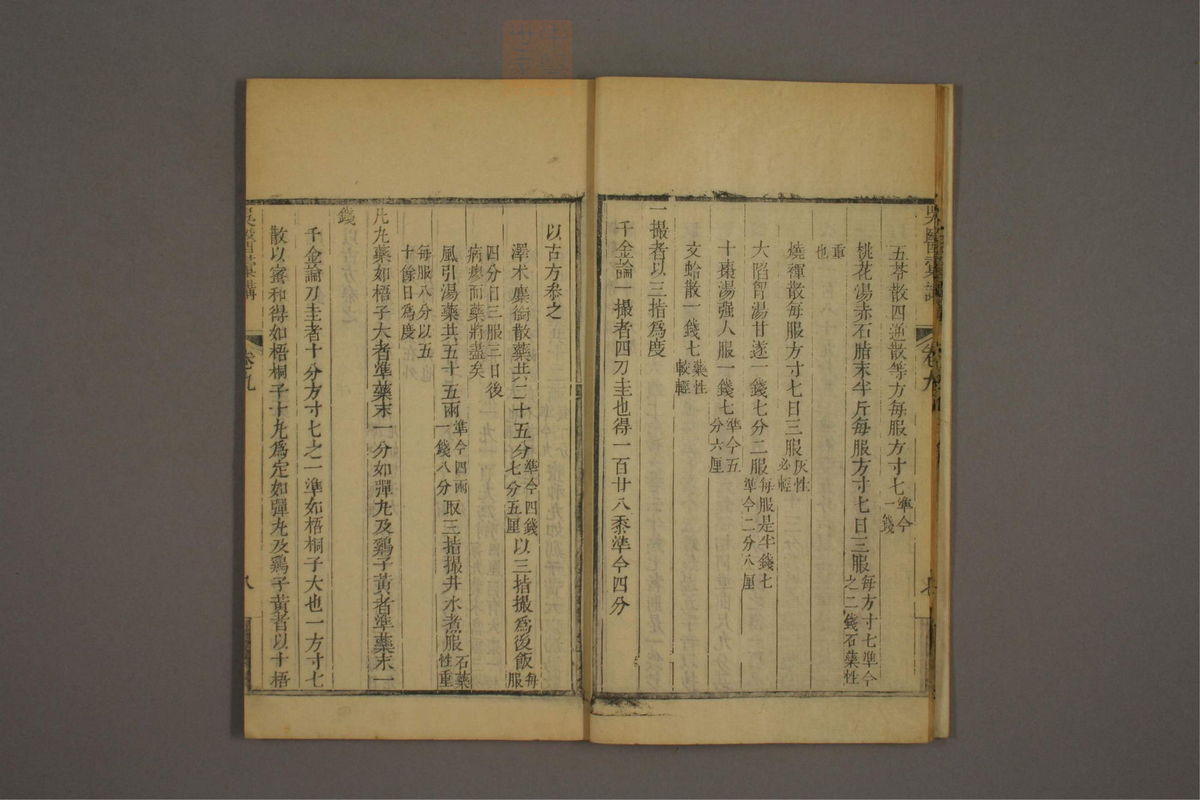 吳醫彙講
卷九
五苓散四逆散等方每服方寸匕準今一錢
桃花湯赤石脂末半斤每服方寸匕日三服每方寸匕準今之二錢石藥性
重也
燒裈散每服方寸匕日三服灰性必輕
大陷胷湯甘遂一錢匕分二服每服是半錢匕準今二分八厘
十棗湯强人服一錢匕準今五分六厘
文蛤散一錢匕藥性較輕
一撮者以三指爲度
千金論一撮者四刀圭也得一百廿八黍準今四分
以古方叅之
澤术麋銜散藥共二十五分準今四錢七分五厘以三指撮爲後飯每服
四分日三服三日後病瘳而藥將盡矣
風引湯藥共五十五兩準今四兩一錢八分取三指撮井水煮服石藥性重
每服八分以五十餘日爲度
凡丸藥如梧子大者準藥末一分如彈丸及鷄子黃者準藥末一
錢
千金論刀圭者十分方寸匕之一準如梧桐子大也一方寸匕
散以蜜和得如梧桐子十丸爲定如彈丸及鷄子黃者以十梧
吳醫彙講
卷九
八